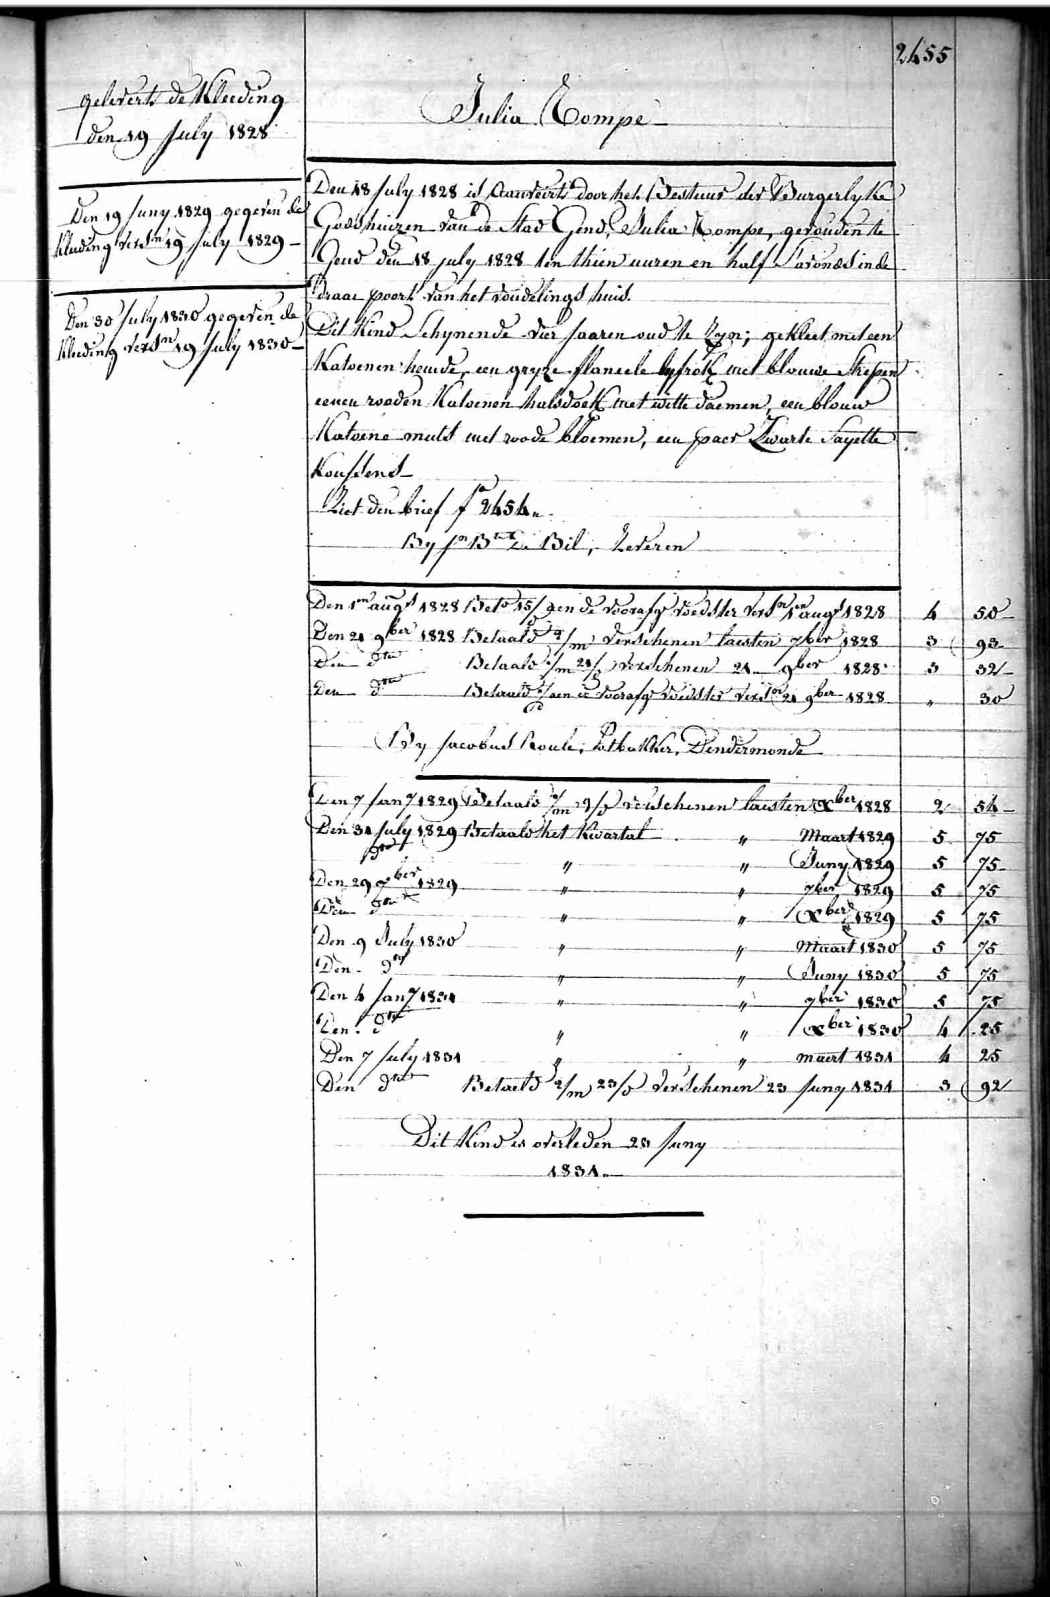 2455
geleverd de Kleeding
den 19 July 1828
Den 19 Juny 1829 gegeven de
Kleeding versn 19 July 1829
Den 30 July 1830 gegeven de
Kleeding versn 19 July 1830
Julia Rompe
Den 18 July 1828 is Aanveird door het Bestuur der Burgerlyke
Godshuizen van de Stad Gend, Julia Rompe, gevonden te
Gend den 18 July 1828 ten thien uuren en half S'avonds in de
draae poort van het vondelings huis.
Dit Kind Schynende vier Jaaren oud te Zyn; gekleet met een
Katoenen hemde, een gryze flaneele lyfrok met blouwe strepen
eenen rooden Katoenen halsdoek met witte daemen, een blouw
Katoene muts met roode bloemen, een paer Zwarte Sayette
Kousens
Ziet den brief fo 2454
By Jn Bte De Bil, Zeveren
Den 1en augt 1828 Beto 15/d aen de voorafg voedster versn 1en augt 1828 4 50
Den 21 9ber 1828 Betaald 2/m verschenen laesten 7ber 1828 3 93
Den dto Betaald 1/m 21/d verschenen 21 9ber 1828 3 32
Den dto Betaald 1/d aen de voorafg voedster versn 21 9ber 1828 " 30
By Jacobus Roule, Potbakker, Dendermonde
Den 7 Jany 1829 Betaald 1/m 9/d verschenen laesten Xber 1828 2 54
Den 31 July 1829 Betaald het Kwartal " Maart 1829 5 75
dto " " Juny 1829 5 75
Den 29 Xber 1829 " " 7ber 1829 5 75
Den dto " " Xber 1829 5 75
Den 9 July 1830 " " Maart 1830 5 75
Den dto " " Juny 1830 5 75
Den 4 Jany 1831 " " 7ber 1830 5 75
Den dto " " Xber 1830 4 25
Den 7 July 1831 " " maert 1831 4 25
Den dto Betaeld 2/m 23/d verschenen 23 Juny 1831 3 92
Dit Kind is overleden 23 Juny
1831.